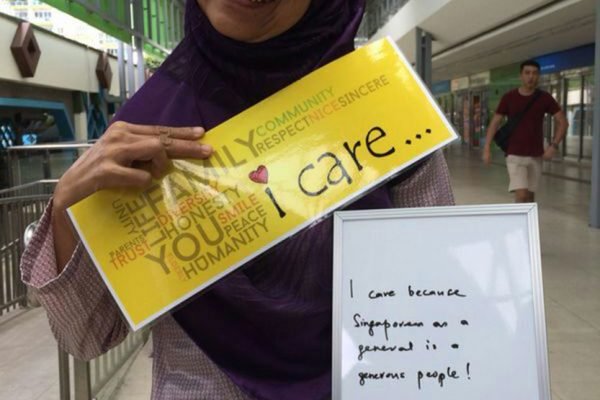 COMMUNITY
RESPECT NICE SINCERE
FAMILY
UNITY
LIFE
PARENTS
TRUST
DIVERSITY
HONESTY
YOU
SMILE
PEACE
HUMANITY
i care...
I care because
Singaporean as a
general is a
generous people!